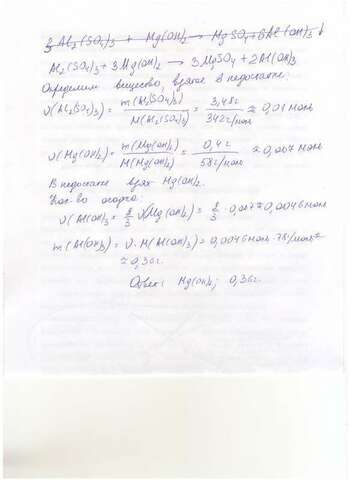 Al₂(SO₄)₃ + Mg(OH)₂ → MgSO₄ + Al(OH)₃↓
Al₂(SO₄)₃ + 3Mg(OH)₂ → 3MgSO₄ + 2Al(OH)₃
Определим вещество, взятое в недостатке:
ν(Al₂(SO₄)₃) = m(Al₂(SO₄)₃) / M(Al₂(SO₄)₃) = 3,42г / 342г/моль ≈ 0,01 моль
ν(Mg(OH)₂) = m(Mg(OH)₂) / M(Mg(OH)₂) = 0,4г / 58г/моль ≈ 0,007 моль
В недостатке взят Mg(OH)₂.
Кол-во осадка:
ν(Al(OH)₃ = 2/3 ν(Mg(OH)₂) = 2/3 · 0,007 ≈ 0,0046 моль
m(Al(OH)₃) = ν · M(Al(OH)₃) = 0,0046 моль · 78г/моль ≈
≈ 0,36г.
Ответ: Mg(OH)₂; 0,36г.